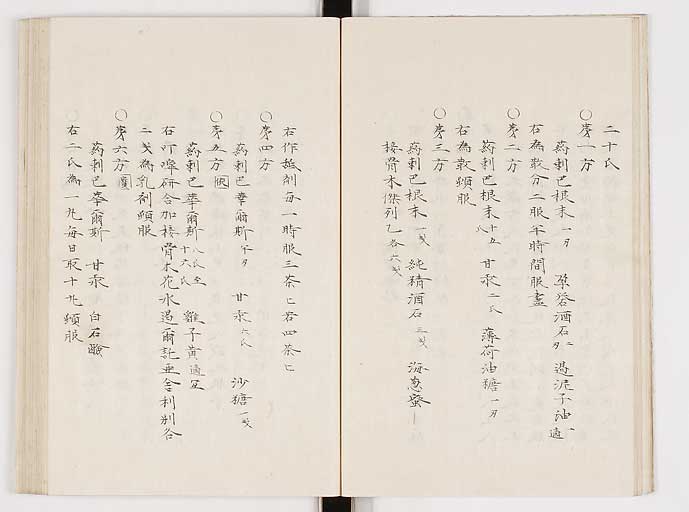 二十氏
○第一方
葯剌巴根末一刃 孕答酒石二刃 過泥子油一適
右為散分二服半時間服盡
○第二方
葯剌巴根末十五八 甘汞二氏 薄荷油糖一刃
右為散頓服
○第三方
葯剌巴根末一戋 純精酒石三戋 海葱蜜
接骨木傑列乙各六戋
右作舐剤毎一時服三茶匕若四茶匕
○第四方
葯剌巴華爾斯半刃 甘汞六氏 沙糖一戋
○第五方
葯剌巴華爾斯八氏至十六氏 雞子黄適宜
右 研合加接骨木花水過爾託亜舎利別各
二戋為乳剤頓服
○第六方
葯剌巴華爾斯 甘汞 白石鹸
右二氏為一丸毎日取十丸頓服